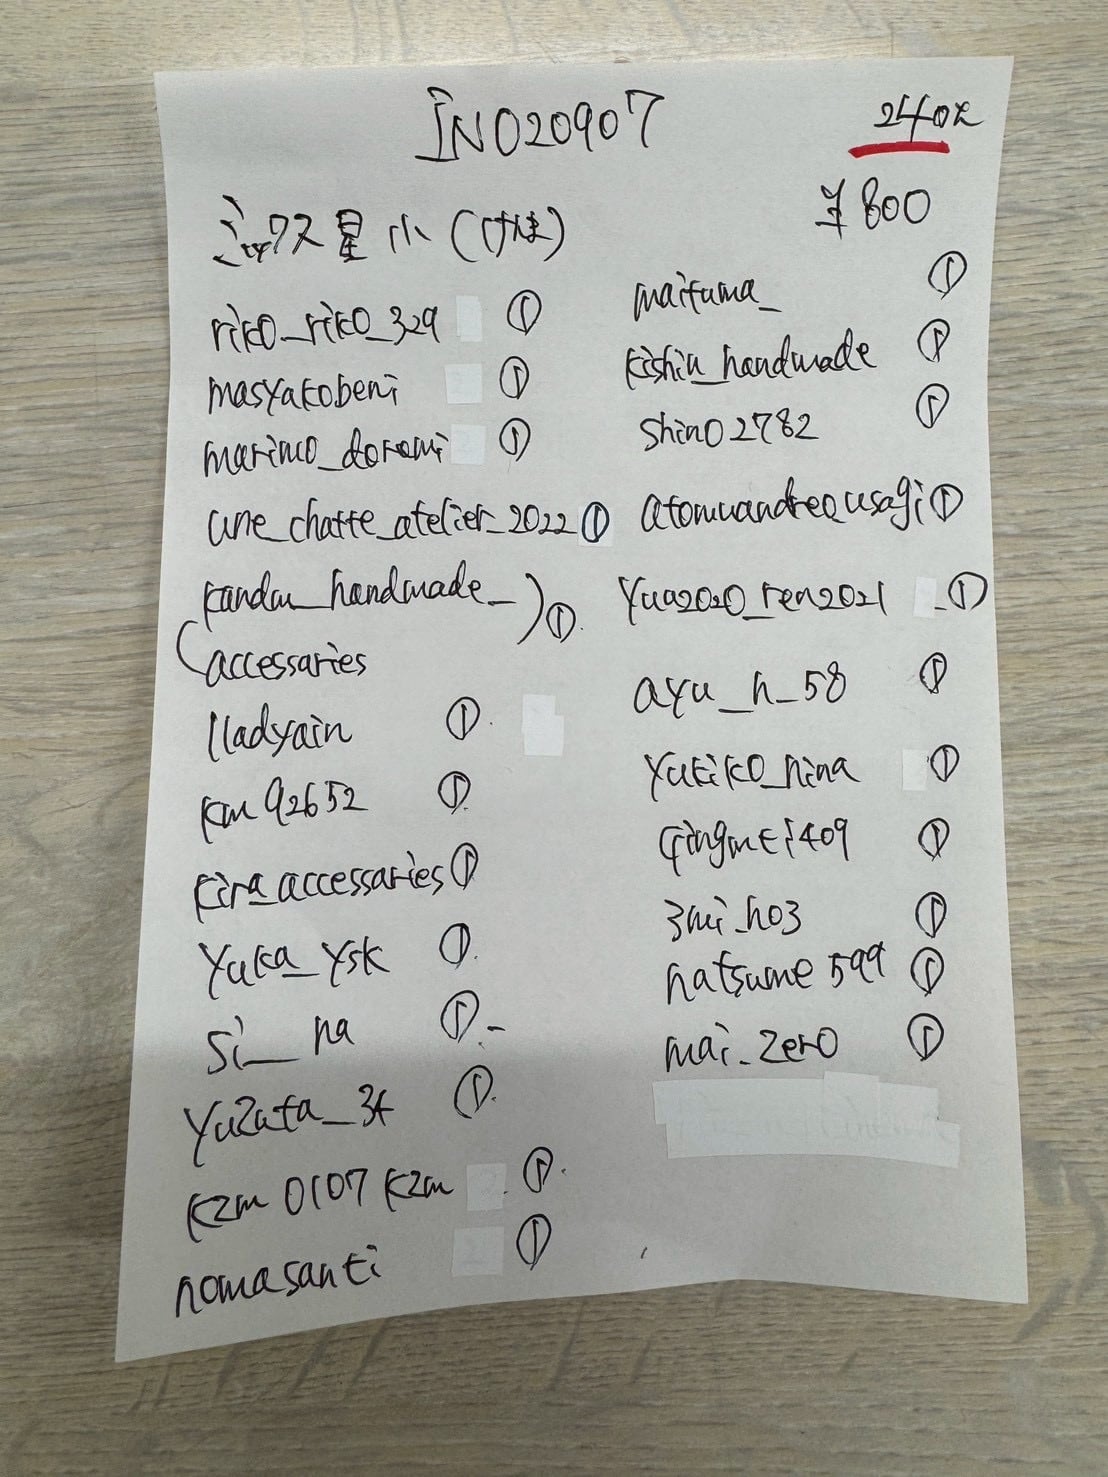 INO20907
240枚
ミックス星小(1才様)
¥800
riko_riko_329 ①
masyakobeni ①
marimo_doremi ①
une_chatte_atelier_2022 ①
(kandm_handmade_) ①
accessaries
lladyain ①
km92652 ①
kira_accessaries ①
yuka_ysk ①
si__na ①
yuzuta_34 ①
kzm0107kzm ①
nomasanti ①
maituma_ ①
kishin_handmade ①
shino2782 ①
atomuandreo_usagi ①
yua2020_ren2021 ①
ayu_h_58 ①
yukiko_nina ①
qingmei409 ①
3mi_ho3 ①
natsume599 ①
mai_zero ①